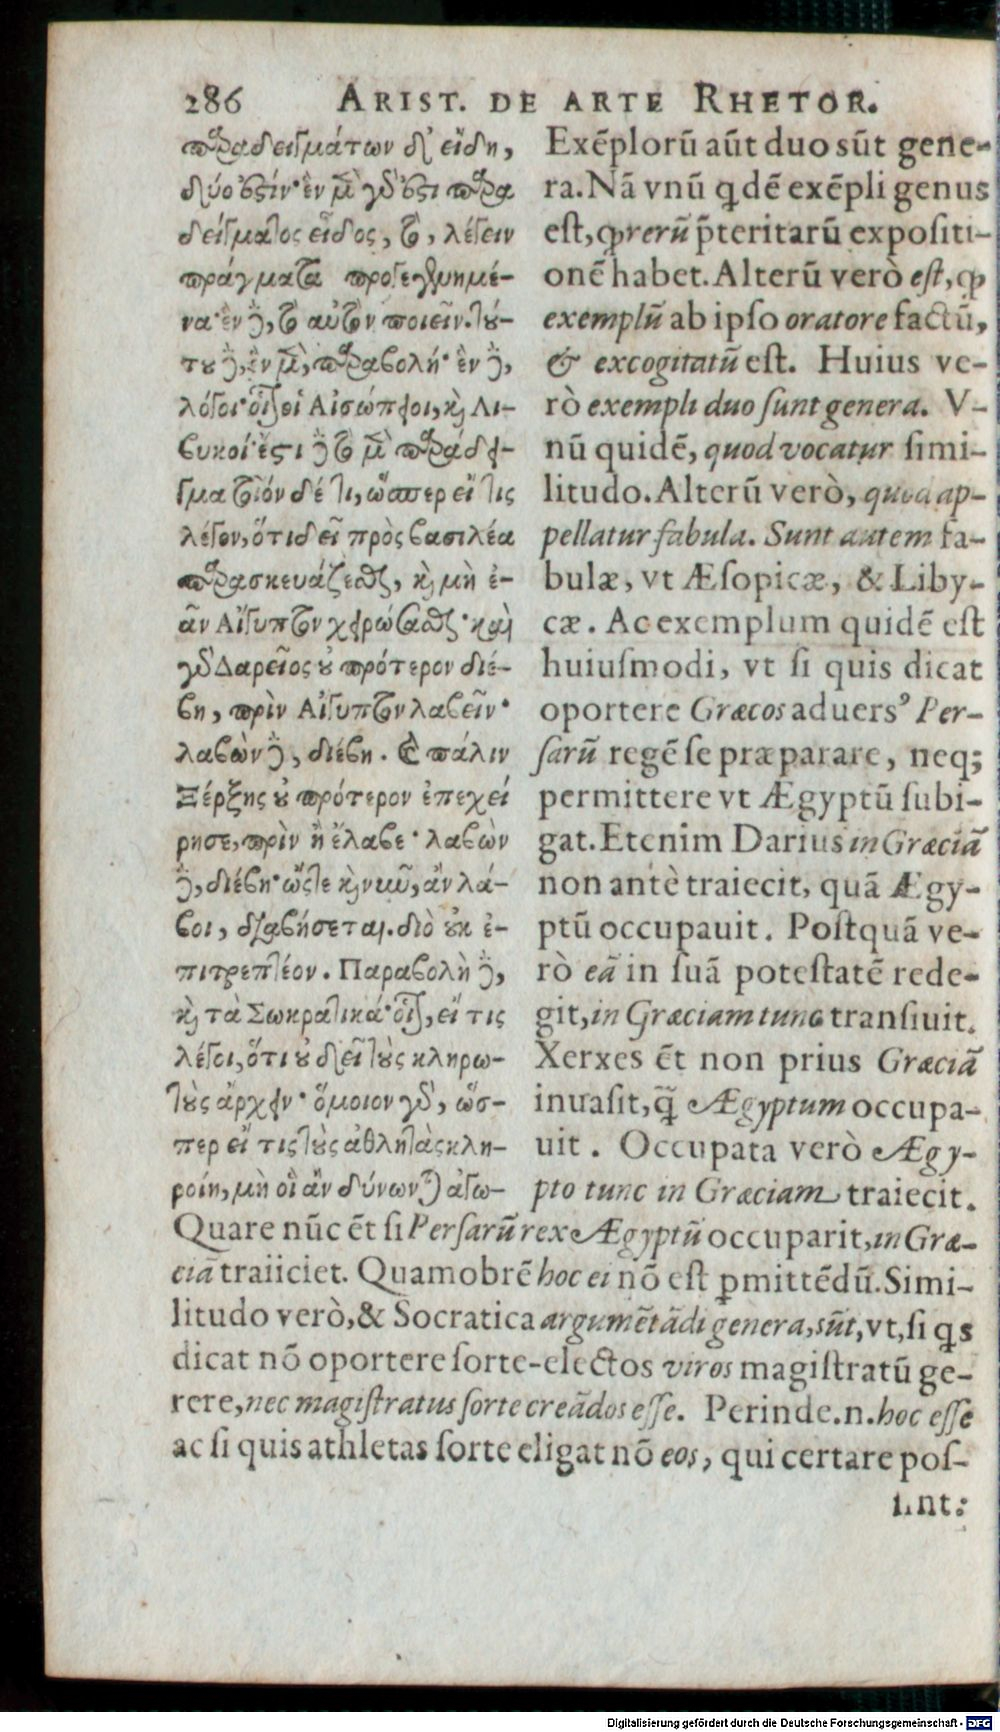 286 ARIST. DE ARTE RHETOR.
παραδειγμάτων δ' εἴδη,
δύο ἐστίν· ἓν μὲν γάρ ἐστι παρα
δείγματος εἶδος, τὸ, λέγειν
πράγματα προγεγενημέ-
να· ἓν δὲ, τὸ αὐτὸν ποιεῖν. τού-
του δὲ, ἓν μὲν, παραβολή· ἓν δὲ,
λόγοι· οἷον οἱ Αἰσώπειοι, καὶ Λι-
βυκοί· ἔστι δὲ τὸ μὲν παραδει-
γμα τοιόνδέ τι, ὥσπερ εἴ τις
λέγοι, ὅτι δεῖ πρὸς βασιλέα
παρασκευάζεσθαι, καὶ μὴ ἐ-
ᾶν Αἴγυπτον χειρώσασθαι· καὶ
γὰρ Δαρεῖος οὐ πρότερον διέ-
βη, πρὶν Αἴγυπτον λαβεῖν·
λαβὼν δὲ, διέβη. καὶ πάλιν
Ξέρξης οὐ πρότερον ἐπεχεί
ρησε, πρὶν ἢ ἔλαβε· λαβὼν
δὲ, διέβη· ὥστε καὶ νῦν, ἂν λά-
βοι, διαβήσεται. διὸ οὐκ ἐ-
πιτρεπτέον. Παραβολὴ δὲ,
καὶ τὰ Σωκρατικά· οἷον, εἴ τις
λέγοι, ὅτι οὐ δεῖ τοὺς κληρω-
τοὺς ἄρχειν· ὅμοιον γὰρ, ὥσ-
περ εἴ τις τοὺς ἀθλητὰς κλη-
ροίη, μὴ οἳ ἂν δύνωνται ἀγω-
Exẽplorũ aũt duo sũt gene-
ra. Nã vnũ qdẽ exẽpli genus
est, qͅ rerũ p̃teritarũ expositi-
onẽ habet. Alterũ verò est, qͅ
exemplũ ab ipso oratore factũ,
& excogitatũ est. Huius ve-
rò exempli duo sunt genera. V-
nũ quidẽ, quod vocatur simi-
litudo. Alterũ verò, quod ap-
pellatur fabula. Sunt autem fa-
bulæ, vt Æsopicæ, & Liby-
cæ. Ac exemplum quidẽ est
huiusmodi, vt si quis dicat
oportere Græcos aduersꝰ Per-
sarũ regẽ se præparare, neq;
permittere vt Ægyptũ subi-
gat. Etenim Darius in Græciã
non antè traiecit, quã Ægy-
ptũ occupauit. Postquã ve-
rò eã in suã potestatẽ rede-
git, in Græciam tunc transiuit.
Xerxes ẽt non prius Græciã
inuasit, q̃ Ægyptum occupa-
uit. Occupata verò Ægy-
pto tunc in Græciam traiecit.
Quare nũc ẽt si Persarũ rex Ægyptũ occuparit, in Græ-
ciã traiiciet. Quamobrẽ hoc ei nõ est ꝑmittẽdũ. Simi-
litudo verò, & Socratica argumẽtãdi genera, sũt, vt, si qs
dicat nõ oportere sorte-electos viros magistratũ ge-
rere, nec magistratus sorte creãdos esse. Perinde .n. hoc esse
ac si quis athletas sorte eligat nõ eos, qui certare pos-
sint:
Digitalisierung gefördert durch die Deutsche Forschungsgemeinschaft - DFG